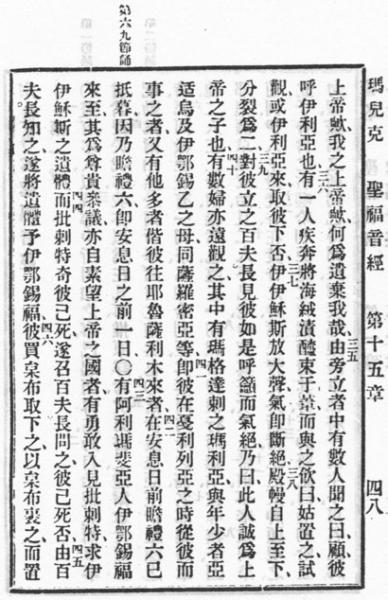 瑪兒克 聖福音經 第十五章 四八
上帝歟我之上帝歟何爲遺棄我哉三五由旁立者中有數人聞之曰顧彼
呼伊利亞也三六有一人疾奔將海絨漬醯束于葦而與之飲曰姑置之試
觀或伊利亞來取彼下否三七伊伊穌斯放大聲氣即斷絕三八殿幔自上至下
分裂爲二三九對彼立之百夫長見彼如是呼籲而氣絕乃曰此人誠爲上
帝之子也四十有數婦亦遠觀之其中有瑪格達剌之瑪利亞與年少者亞
适烏及伊鄂錫乙之母同薩羅密亞等四一即彼在戞利列亞之時從彼而
事之者又有他多者偕彼往耶魯薩利木來者四二在安息日前瞻禮六已
抵暮因乃瞻禮六即安息日之前一日○四三有阿利瑪斐亞人伊鄂錫福
來至其爲尊貴叅議亦自素望上帝之國者有勇敢入見批剌特求伊
伊穌斯之遺體四四而批剌特奇彼已死遂召百夫長問之彼已死否四五由百
夫長知之遂將遺體予伊鄂錫福四六彼買枲布取下之以枲布裹之而置
第六九節誦